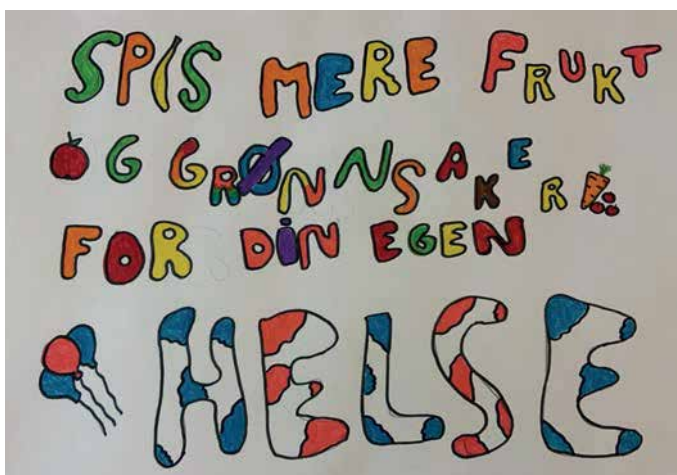 SPIS MERE FRUKT
OG GRØNNSAKER
FOR DIN EGEN
HELSE